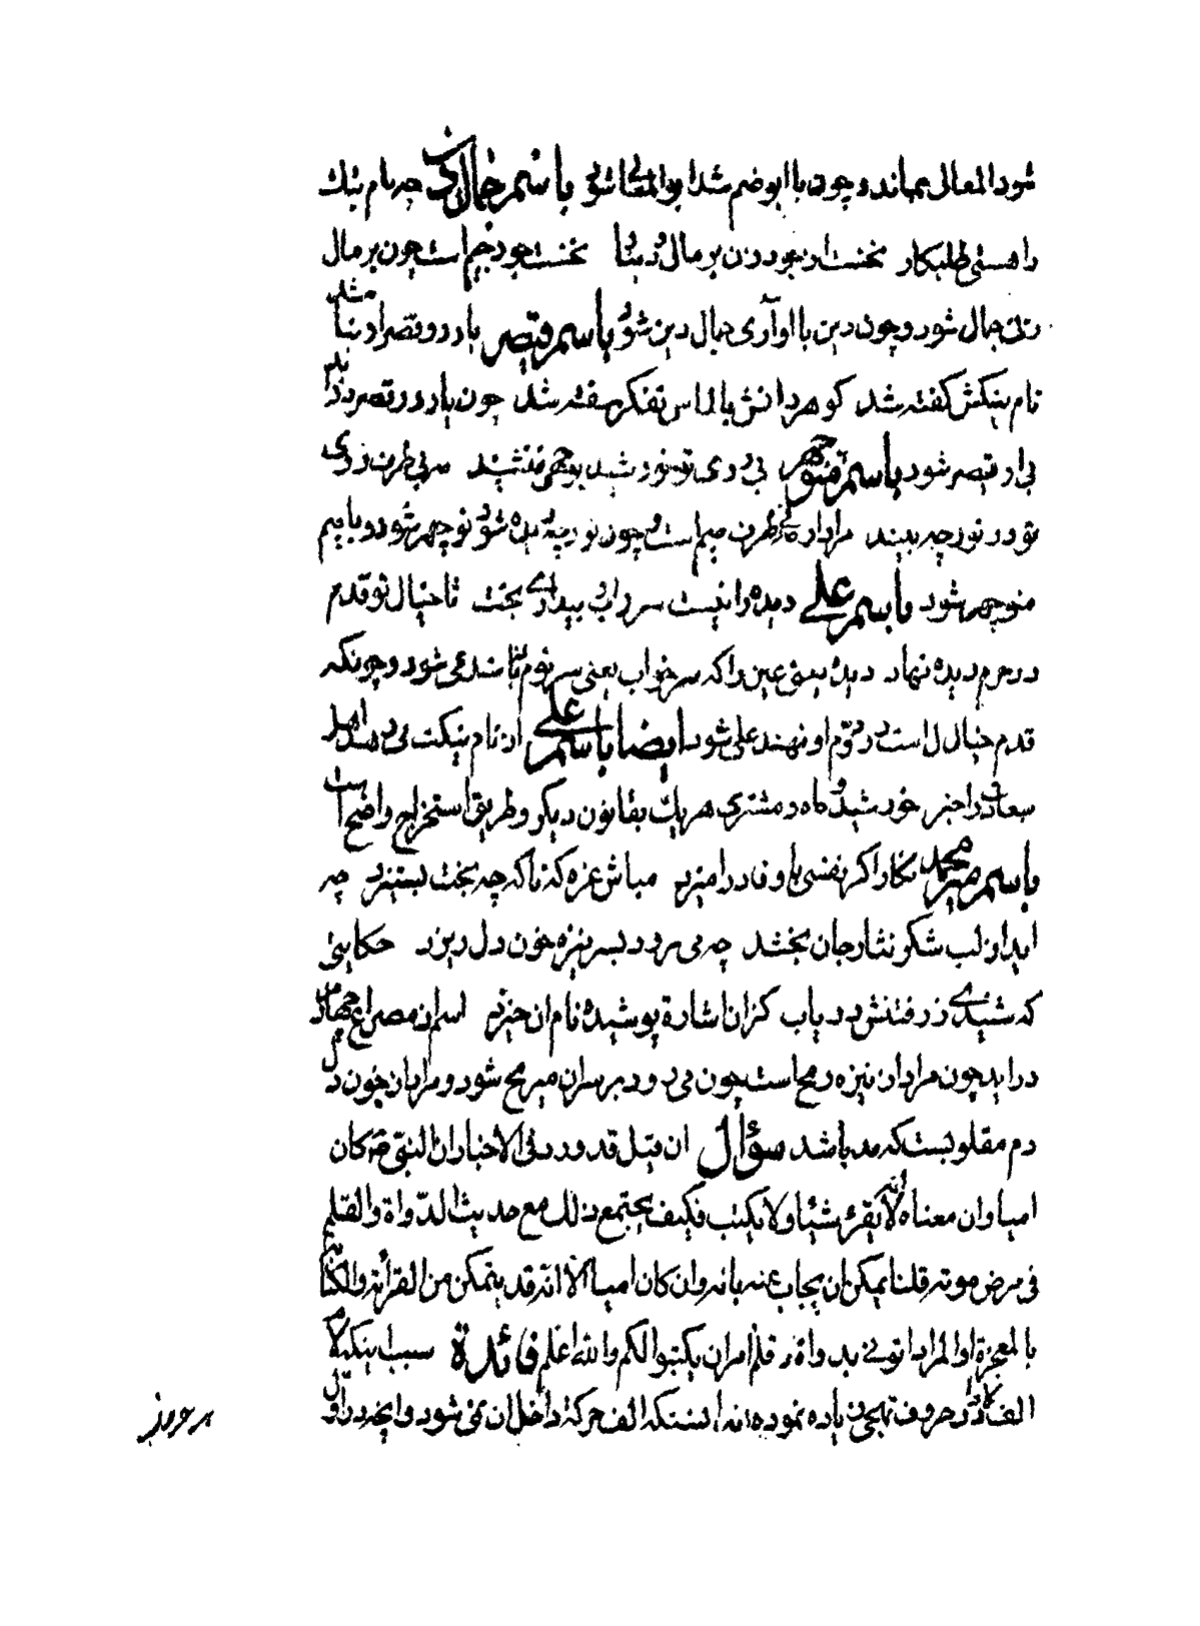 شود المعالی بماند و چون با ابو ضم شد ابو المعالی شود باسم جمال دین چه نام نیك
را هستی طلبکار نخست از جود زن بر مال دینا نخست جود جیم است چون بر مال
زنی جمال شود و چون دین با او آری جمال دین شود باسم قیصر یار دو قصر از بنا مثلش
نام نیکش گفته شد گوهر دانش بالماس تفکر سفته شد چون یار دو قصر
بی ار قیصر شود باسم منوچهر بی روی تو خورشید بوجهی ننشیند هر بی طرف ز روی
تو در نور چه بیند مراد از طرف میم است و چون نور چه دیده شود نوچهر شود و با میم
منوچهر شود باسم علی دیده را نیست سر خواب بیداری بخت تا خیال تو قدم
در حرم دیده نهاد دیده یعنی عین را که سر خواب یعنی سر نوم باشد عی شود و چونکه
قدم خیال ل است در دوم او نهند علی شود ایضا باسم علی از نام نیکت می دهد اهل
سعادت را خبر خورشید و ماه و مشتری هر یك بقانون دیگر و طریق استخراج واضح است
باسم میر محمد نگارا گر نفسی با وفا در امیزیم مباش غره که ناگه چه بخت بستیزیم چه
اید از لب شکر نثار جان بخشد چه می رود بسر نیزه خون دل ریزد حکایتی
که شنیدی ز رفتنش دریاب کزان اشارة پوشیده نام ان خیزد اسم از مصراع چهارم
در اید چون مراد از نیزه رمح است چون می رود بر سر ان میر مح شود و مراد از خون دل
دم مقلوبست که مد باشد سؤال ان قیل قد ورد فی الاخبار ان النبی ص کان
امیا وان معناه انه لا یقرء شیئا ولا یکتب فکیف یجتمع ذلك مع حدیث الدواة والقلم
فی مرض موته قلنا یمکن ان یجاب عنه بانه وان کان امیا الا انه قد یتمکن من القرائة والکتابة
بالمعجزة او المراد اتونی بدواة و قلم امر ان یکتبوا لکم والله اعلم فائدة سبب اینکه لام
الف را در حروف تهجی زیاده نموده اند انستکه الف متحرکه داخل ان نمی شود و انچه در اول